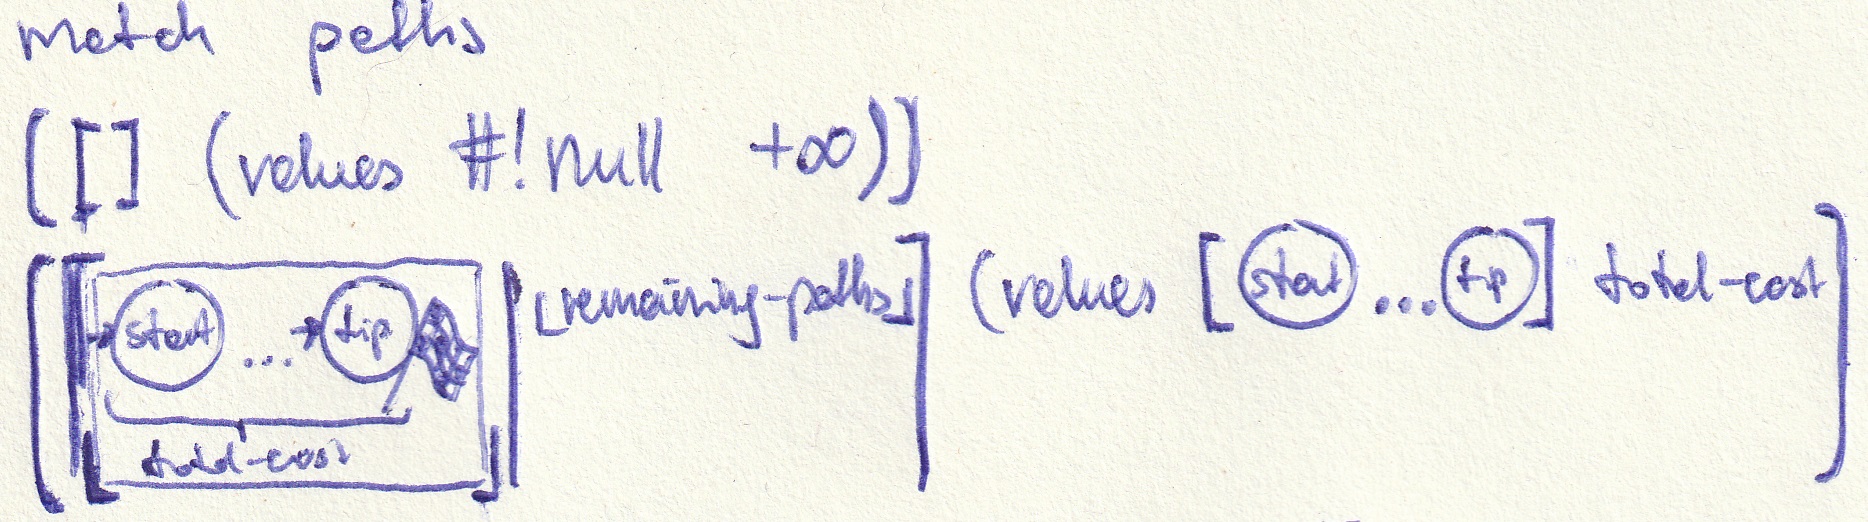 match paths
([] (values #!null +∞)]
([[→start ... →tip total-cost] [remaining-paths]] (values [start ... tip] total-cost)